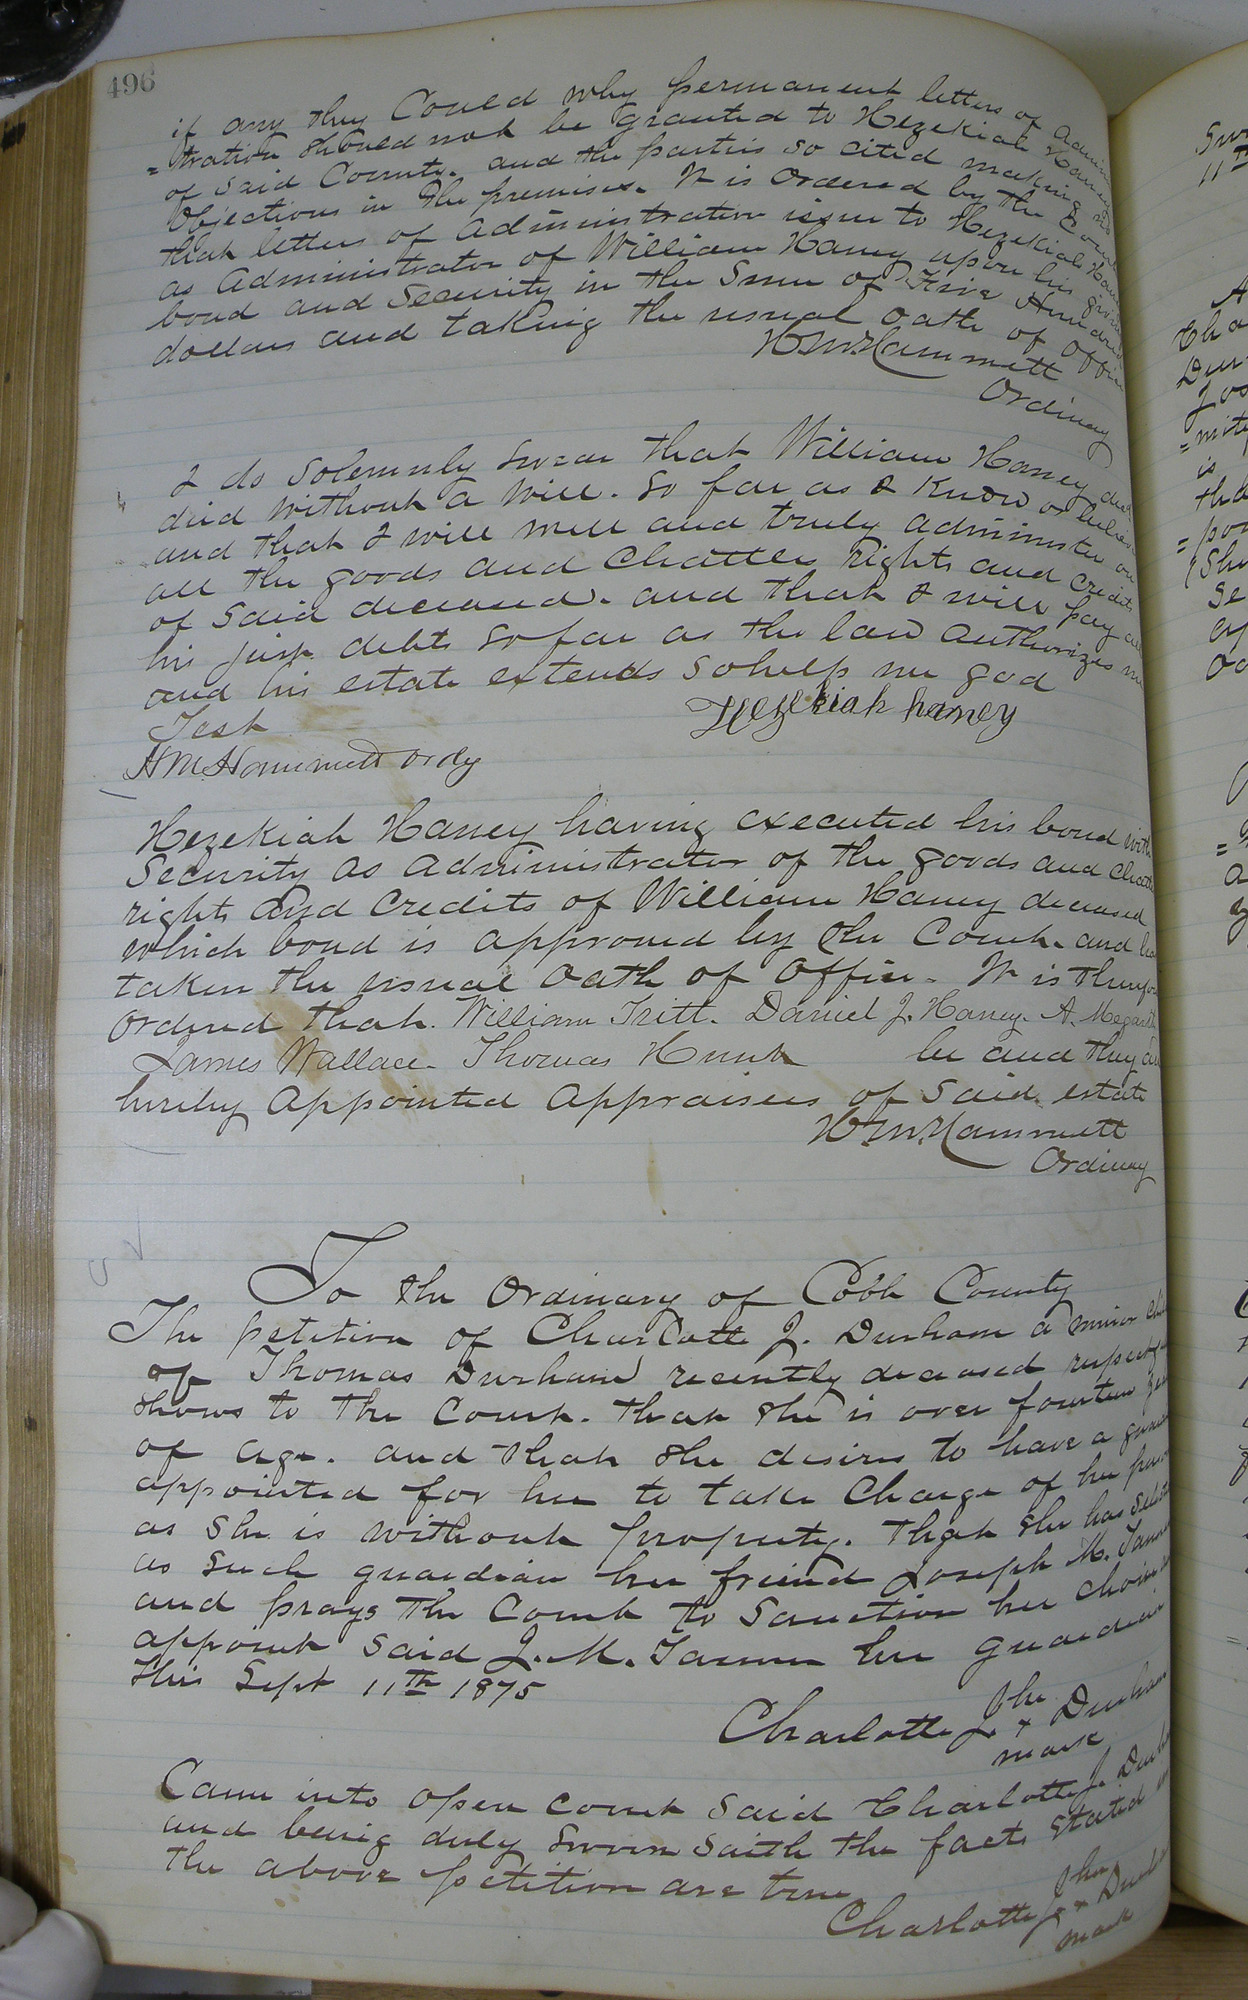 496
if any they Could why permanent letters of Admin
=tration should not be granted to Hezekiah Haney
of Said County. and the parties so cited making no
Objections in the premises. It is Ordered by the Court
that letters of Administration issue to Hezekiah Haney
as Administrator of William Haney upon his giving
bond and Security in the Sum of Five Hundred
dollars and taking the usual oath of Office
H.M. Hammett
Ordinary
I do Solemnly swear that William Haney decd
died without a Will. So far as I Know or believe
and that I will well and truly administer on
all the goods and Chattles rights and credits
of Said deceased. and that I will pay all
his just debts so far as the law Authorizes me
and his estate extends So help me god
Test
Hezekiah haney
H M. Hammett Ordy
Hezekiah Haney having executed his bond with
Security as Administrator of the goods and Chattles
rights And Credits of William Haney deceased
which bond is approved by the Court. and has
taken the usual Oath of Office. It is therefore
Ordered that. William Tritt. Daniel J. Haney. A.
James Wallace. Thomas Hunt be and they are
hereby Appointed Appraisers of Said estate
H.M. Hammett
Ordinary
To the Ordinary of Cobb County
The petition of Charlotte J. Durham a minor child
of Thomas Durham recently deceased respectfully
shows to the Court. that she is over fourteen years
of age. and that she desires to have a guardian
appointed for her to take Charge of her person
as she is without property. that she has selected
as such guardian her friend Joseph M. Tanner
and prays the Court to Sanction her choice
appoint said J. M. Tanner her guardian
this Sept 11th 1875
her
Charlotte J. x Durham
mark
Came into open court said Charlotte J. Durham
and being duly sworn saith the facts stated in
the above petition are true
her
Charlotte J. x Durham
mark